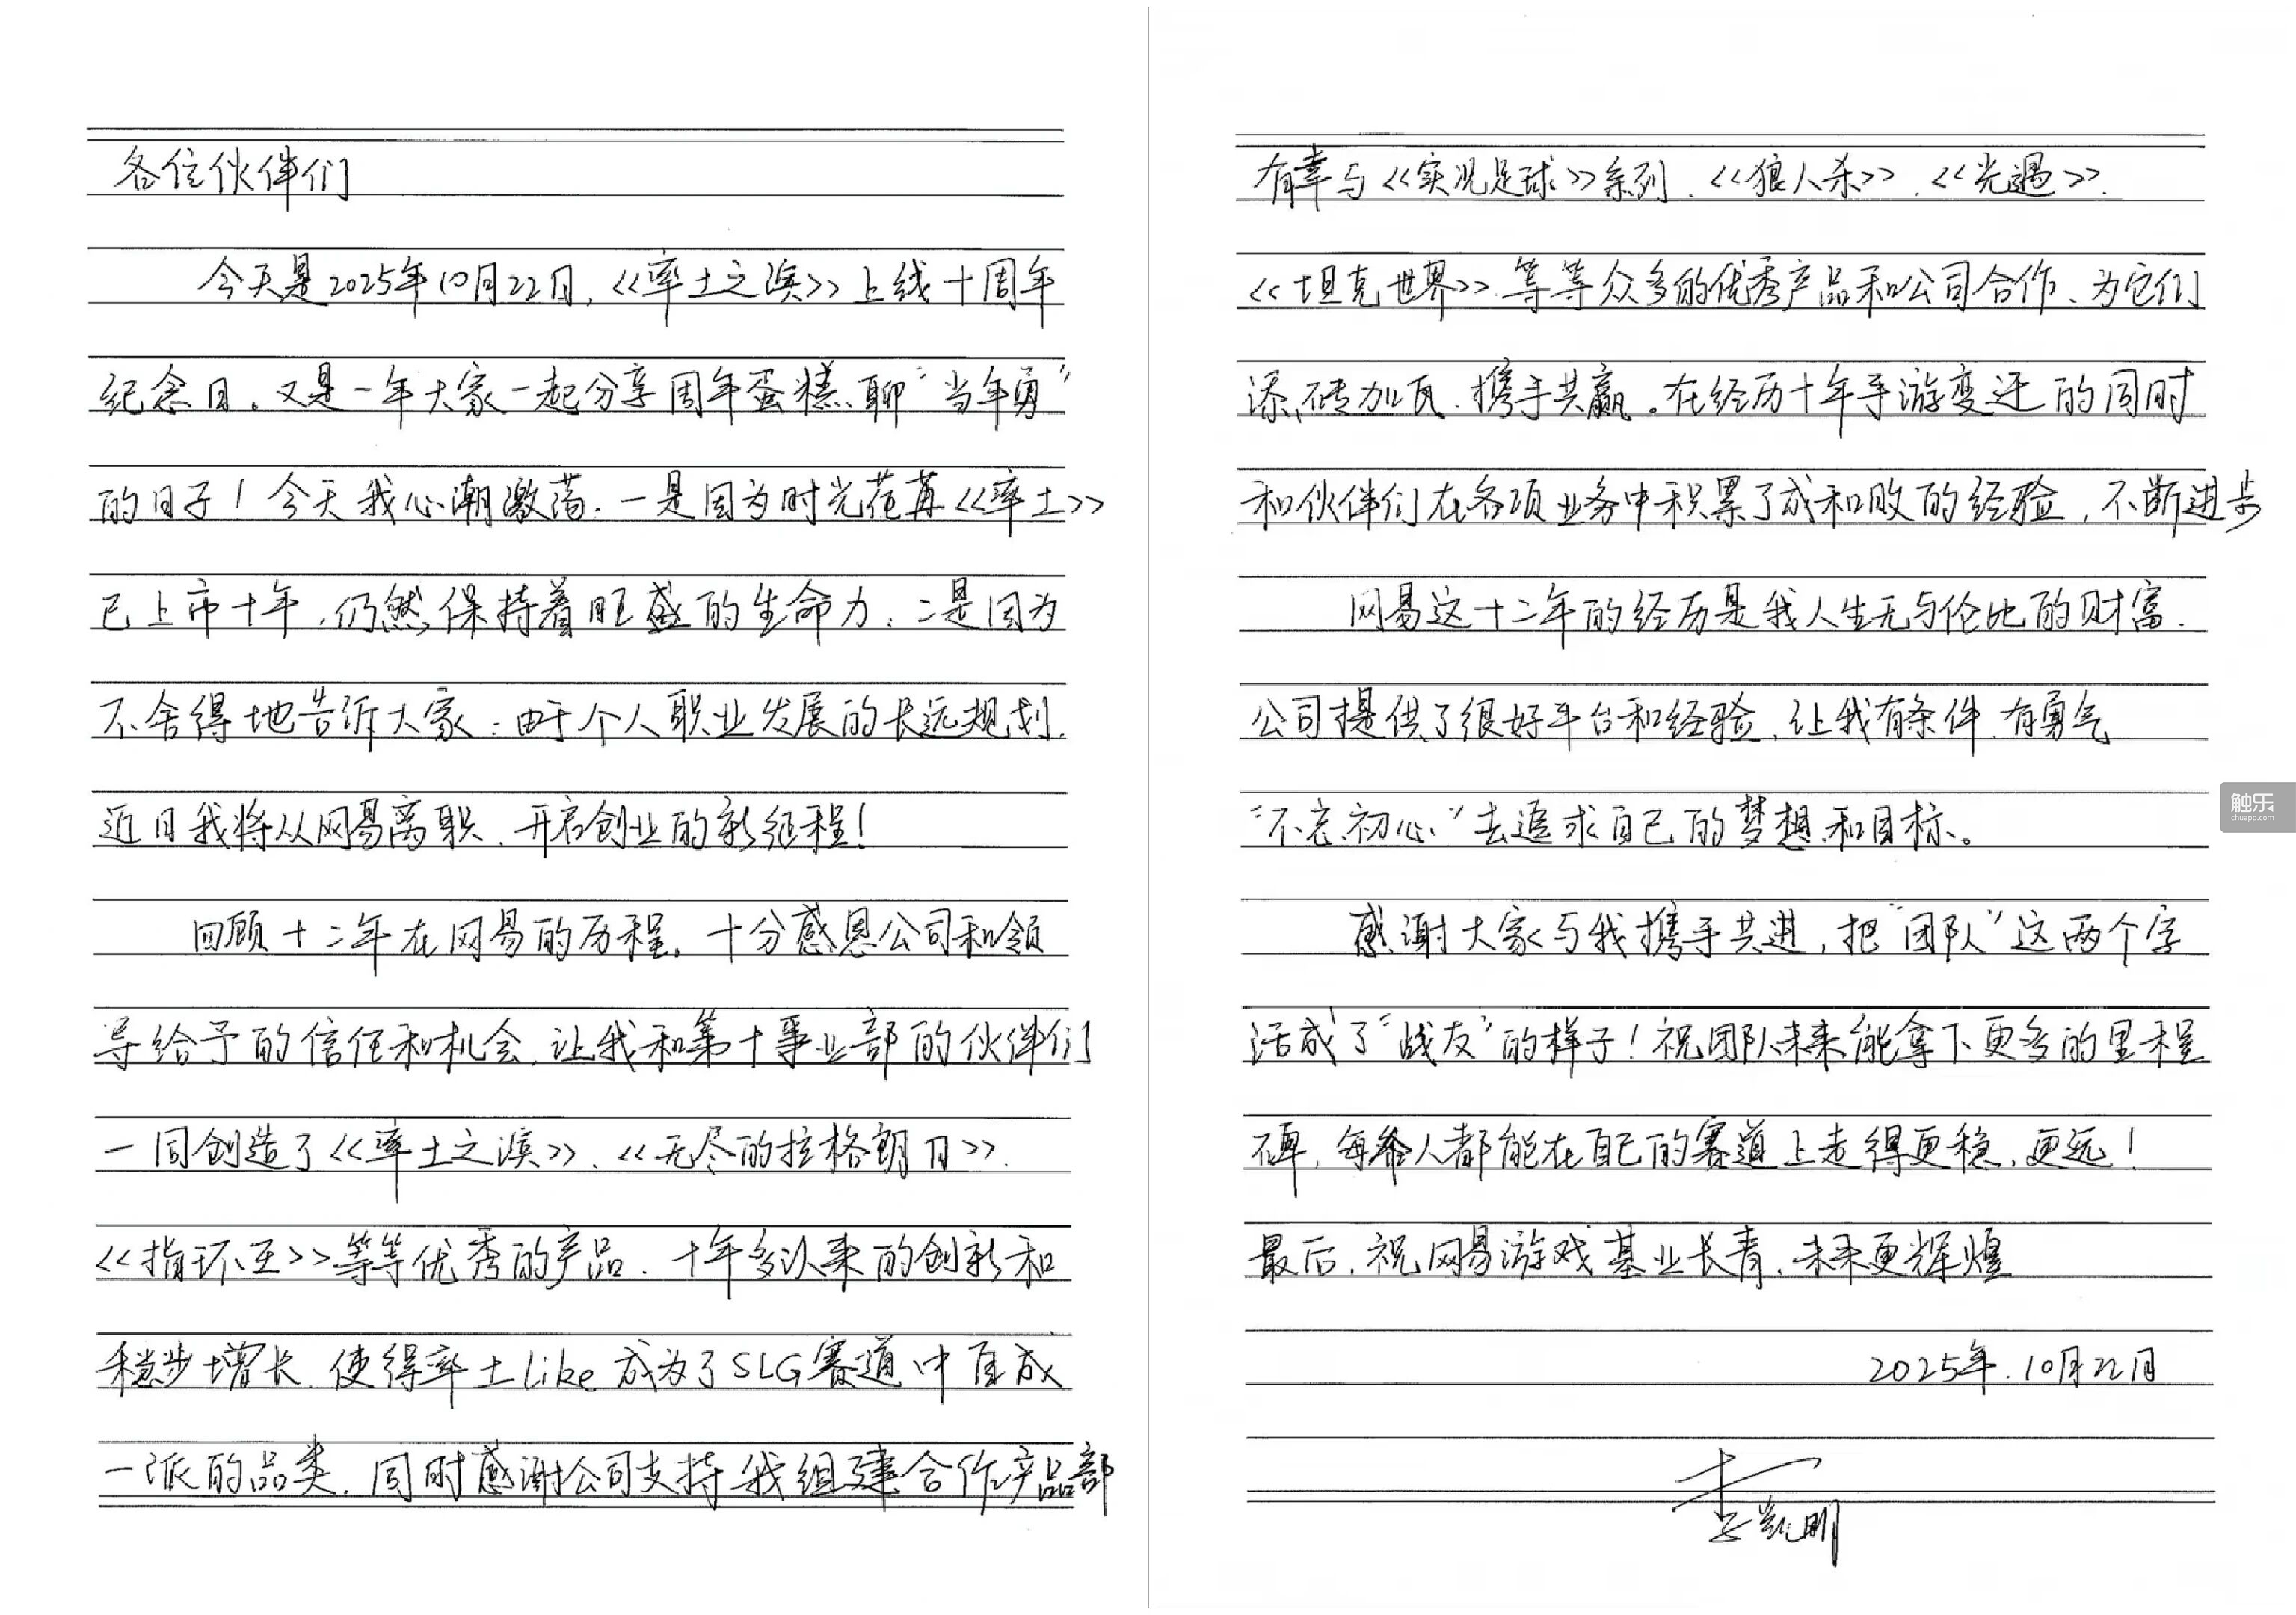 各位伙伴们
今天是2025年10月22日,《率土之滨》上线十周年
纪念日。又是一年大家一起分享周年蛋糕、聊“当年勇”
的日子!今天我心潮激荡.一是因为时光荏苒《率土》
已上市十年,仍然保持着旺盛的生命力;二是因为
不舍得地告诉大家:由于个人职业发展的长远规划.
近日我将从网易离职、开启创业的新征程!
回顾十二年在网易的历程,十分感恩公司和领
导给予的信任和机会,让我和第十事业部的伙伴们
一同创造了《率土之滨》、《无尽的拉格朗日》、
《指环王》等等优秀的产品.十年多以来的创新和
稳步增长,使得率土Like成为了SLG赛道中自成
一派的品类.同时感谢公司支持我组建合作产品部
有幸与《实况足球》系列、《狼人杀》、《光遇》、
《坦克世界》等等众多的优秀产品和公司合作、为它们
添砖加瓦.携手共赢。在经历十年手游变迁的同时
和伙伴们在各项业务中积累了成和败的经验,不断进步
网易这十二年的经历是我人生无与伦比的财富.
公司提供了很好平台和经验,让我有条件、有勇气
“不忘初心”去追求自己的梦想和目标。
感谢大家与我携手共进,把“团队”这两个字
活成了“战友”的样子!祝团队未来能拿下更多的里程
碑,每个人都能在自己的赛道上走得更稳,更远!
最后,祝网易游戏基业长青、未来更辉煌
2025年.10月22日
李凯明
触乐
chuapp.com